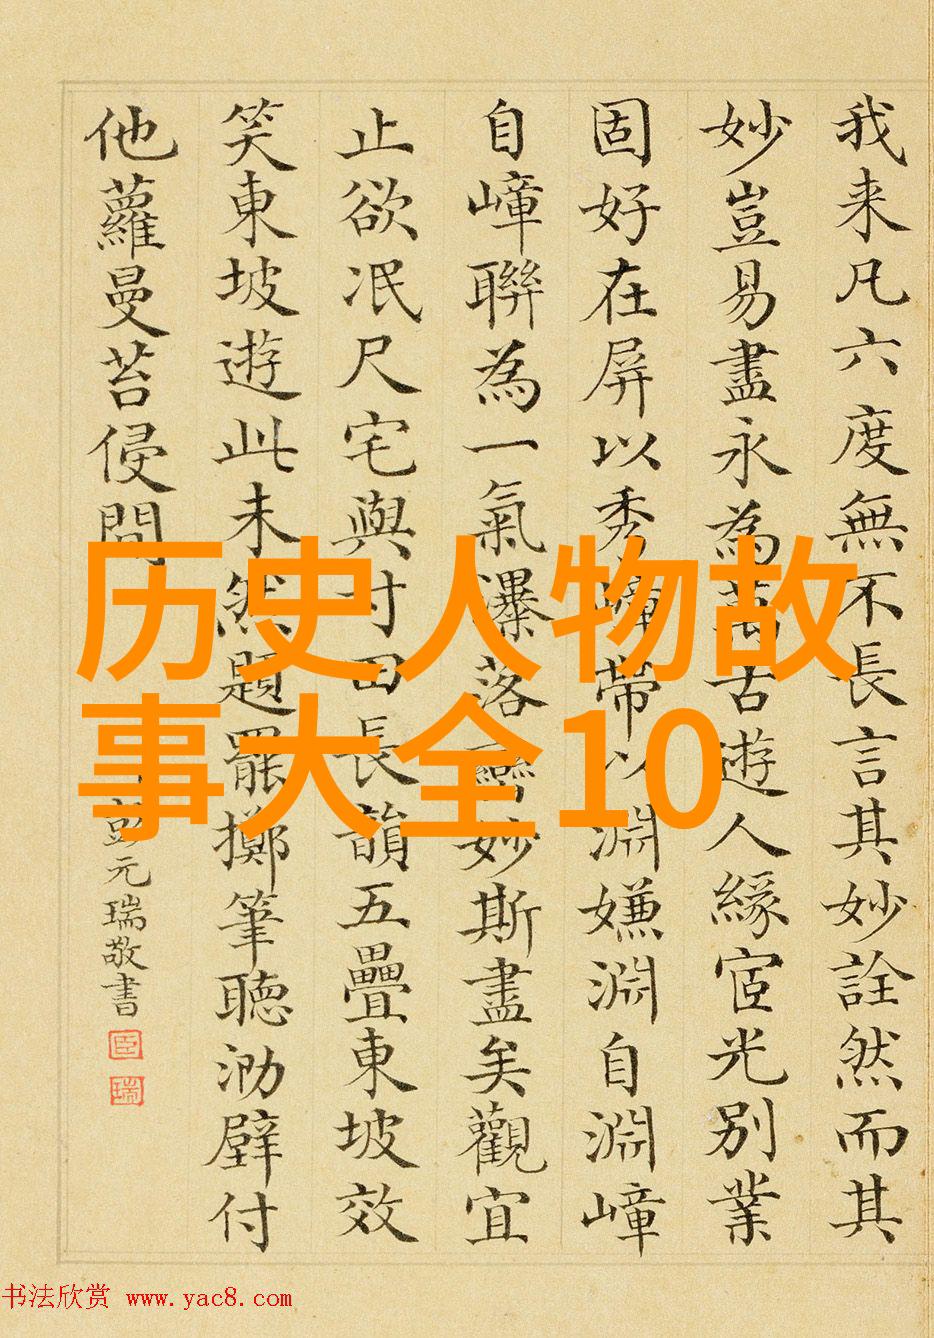 我来凡六度無不長言其妙詮然而其
妙豈易盡永為萬古遊人緣宦光別業
固好在屏以秀嶂帶以淵嫌淵自淵嶂
自嶂聯為一氣瀑落妙斯盡矣觀宜
止欲泯尺宅與寸田長韻五疊東坡效
笑東坡遊此未然題罷擲筆聽泐壁付
他蘿蔓苔侵問
彭元瑞敬書
臣
瑞
历史人物故
事大全10
书法欣赏 www.yac8.com